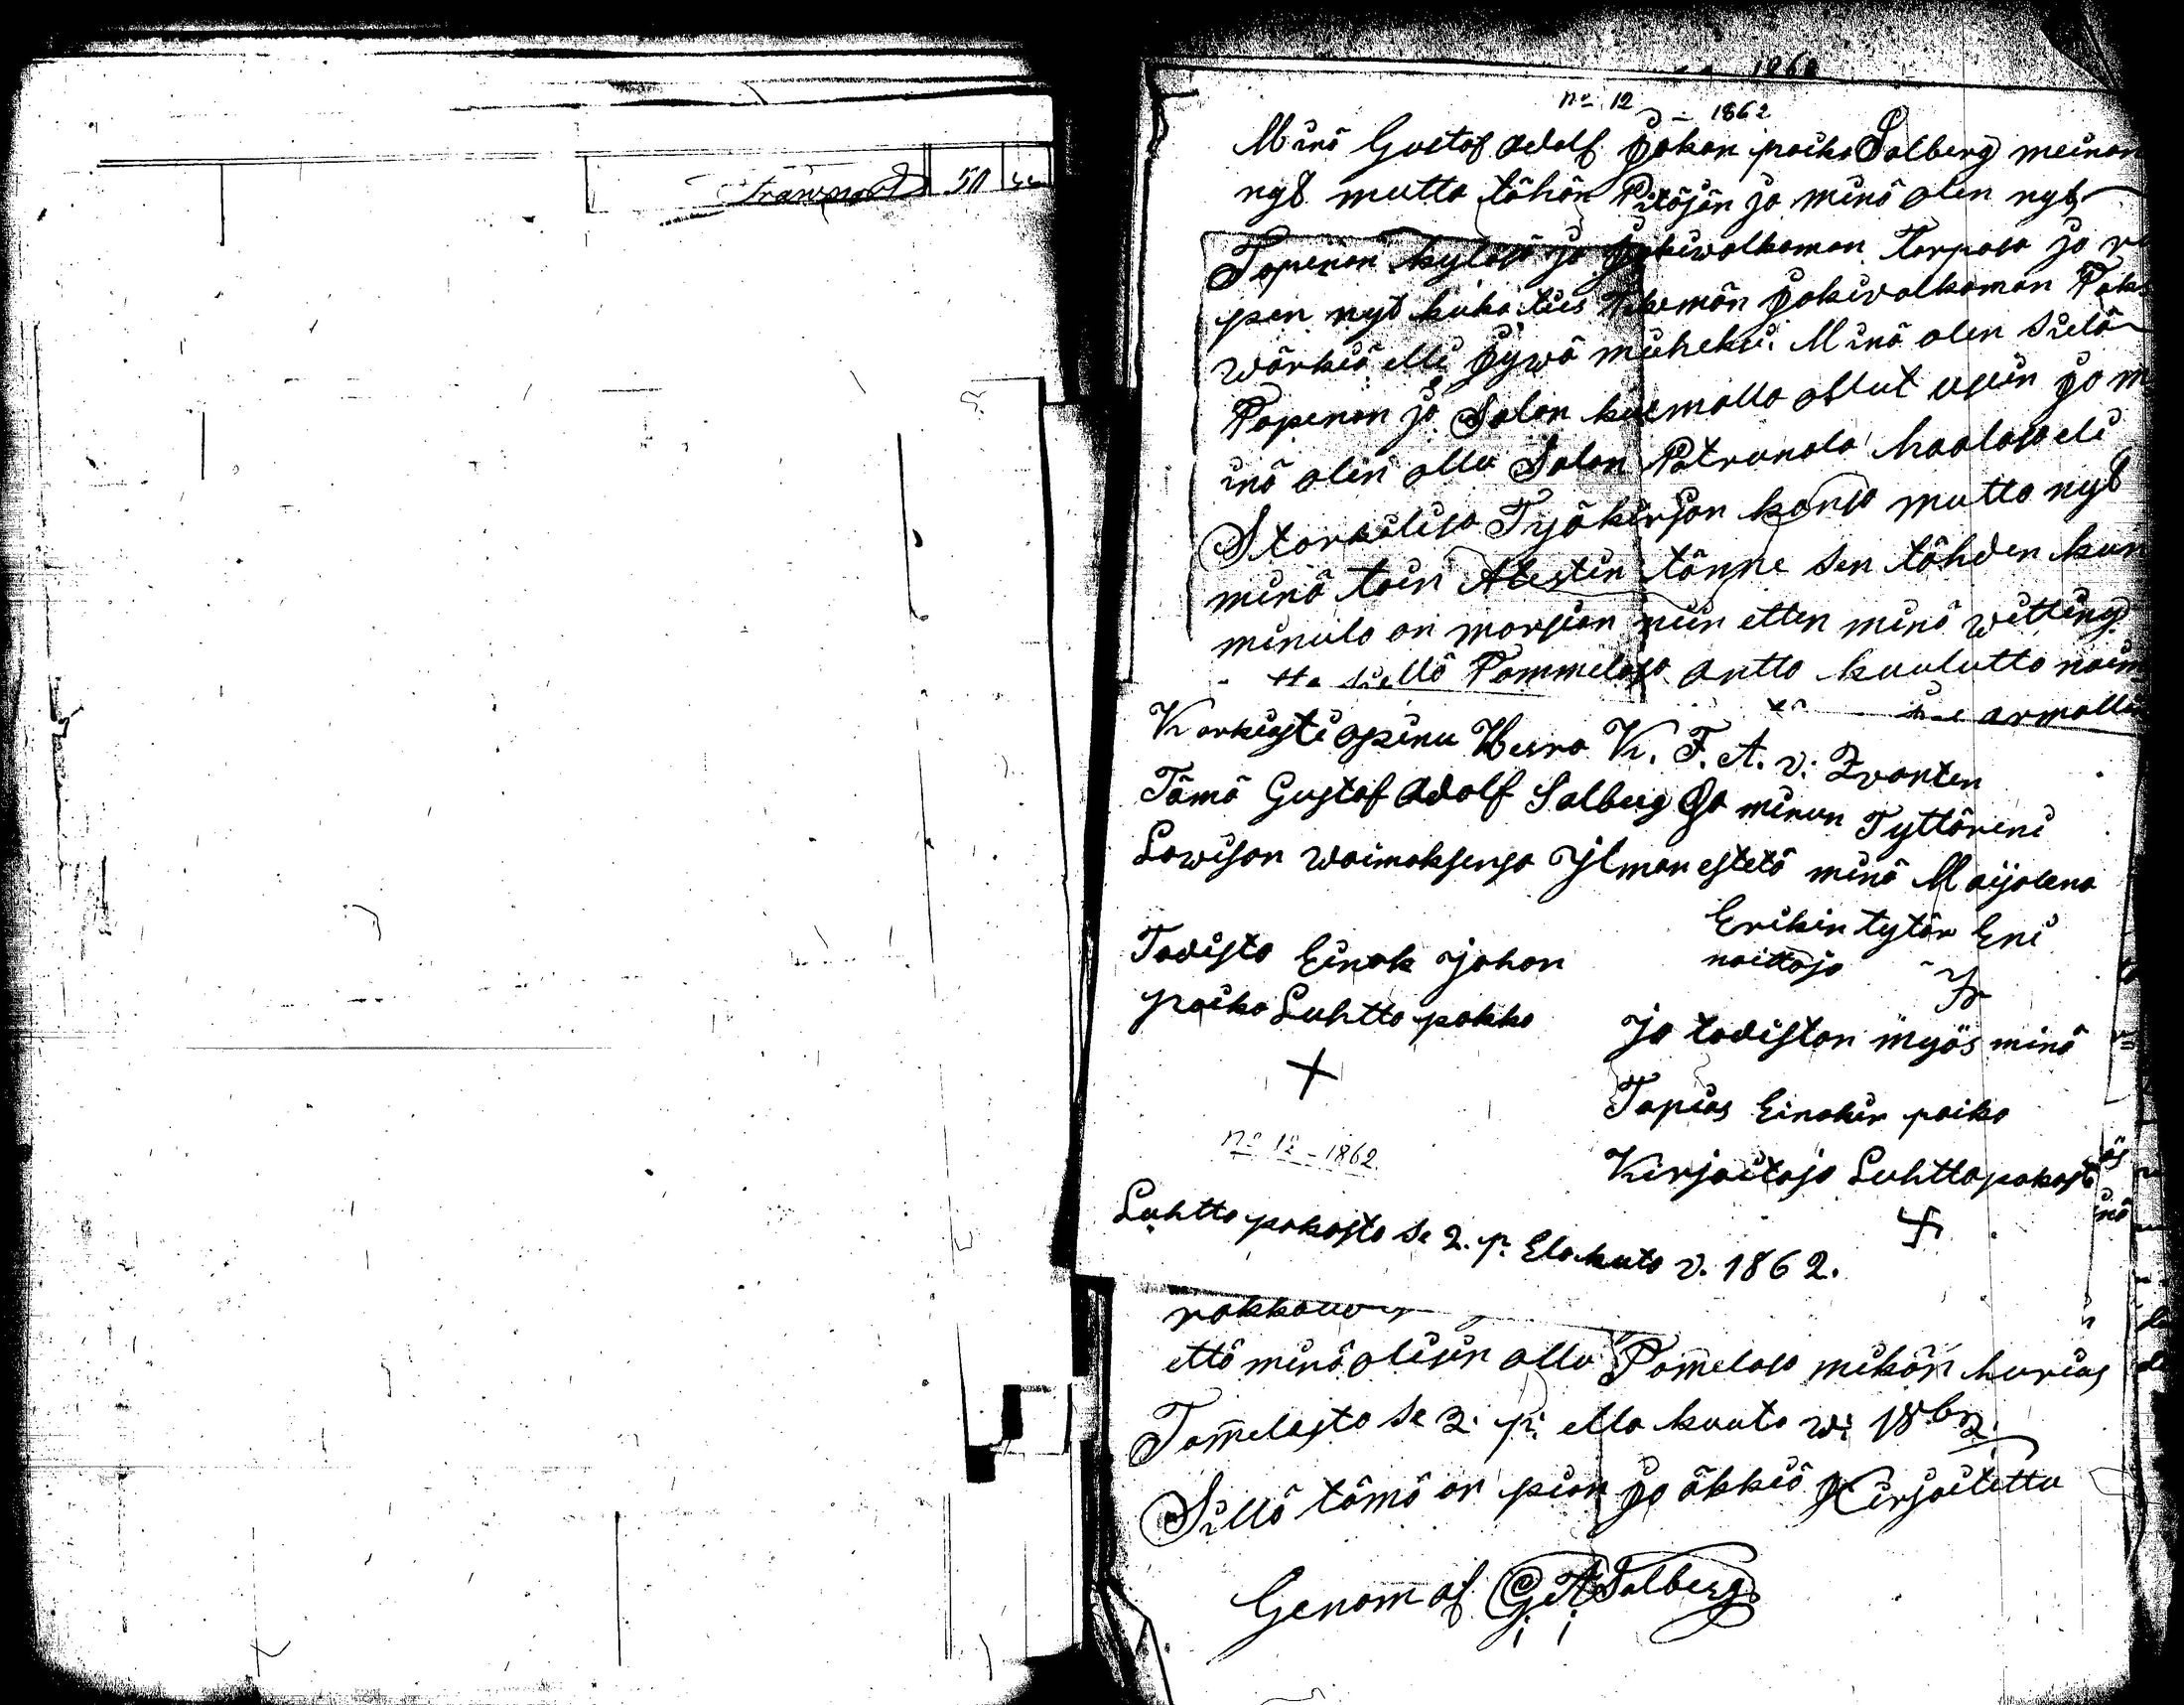 Transport 50
1862
no 12 - 1862
Minä Gustaf Adolf Jokan poika Salberg meinan
nyt mutta tähän Pitäjän ja minä olen nyt
Topenon kyläsä ja Jokiwalkaman Torpasa ja
pen nyt kuka ties Tekemän Jokiwalkaman
wärkiä elli hywä muheksi. Minä olen sielä
Topenon ja Salon kulmalla ollut usein ja m
inä olin ollu Salon Patrunala haalasa eli
Storkilisa Työkirjan kansa mutta nyt
minä toin Atestin tänne sen tähden kun
minula on morsian niin etten minä witting
siellä Tammelasa antta kuulutta
armolli
Korkiasti opinu Herra K. F. A. v. Zvanten
Tämä Gustaf Adolf Salberg Sa minun Tyttäreni
Lowisan waimaksensa Ilman estetä minä Maijalena
Erikin tytär Eni
naittaja
Todista Einok Johan
poika Luhtta pakka
Ja todistan myös minä
Tapias Einokin poika
Kirjoitaja Luhttapakasta
no 12 - 1862.
Luhtta pakasta se 2. p. Elokuta v. 1862.
rakkau
että minä olisin ollu Tam̄elasa mikän hurias
Tam̄elasta se 2. p: ella kuuta w: 1862.
Sillä tämä on pian ja äkkiä Kirjoitettu
Genom af G A Salberg